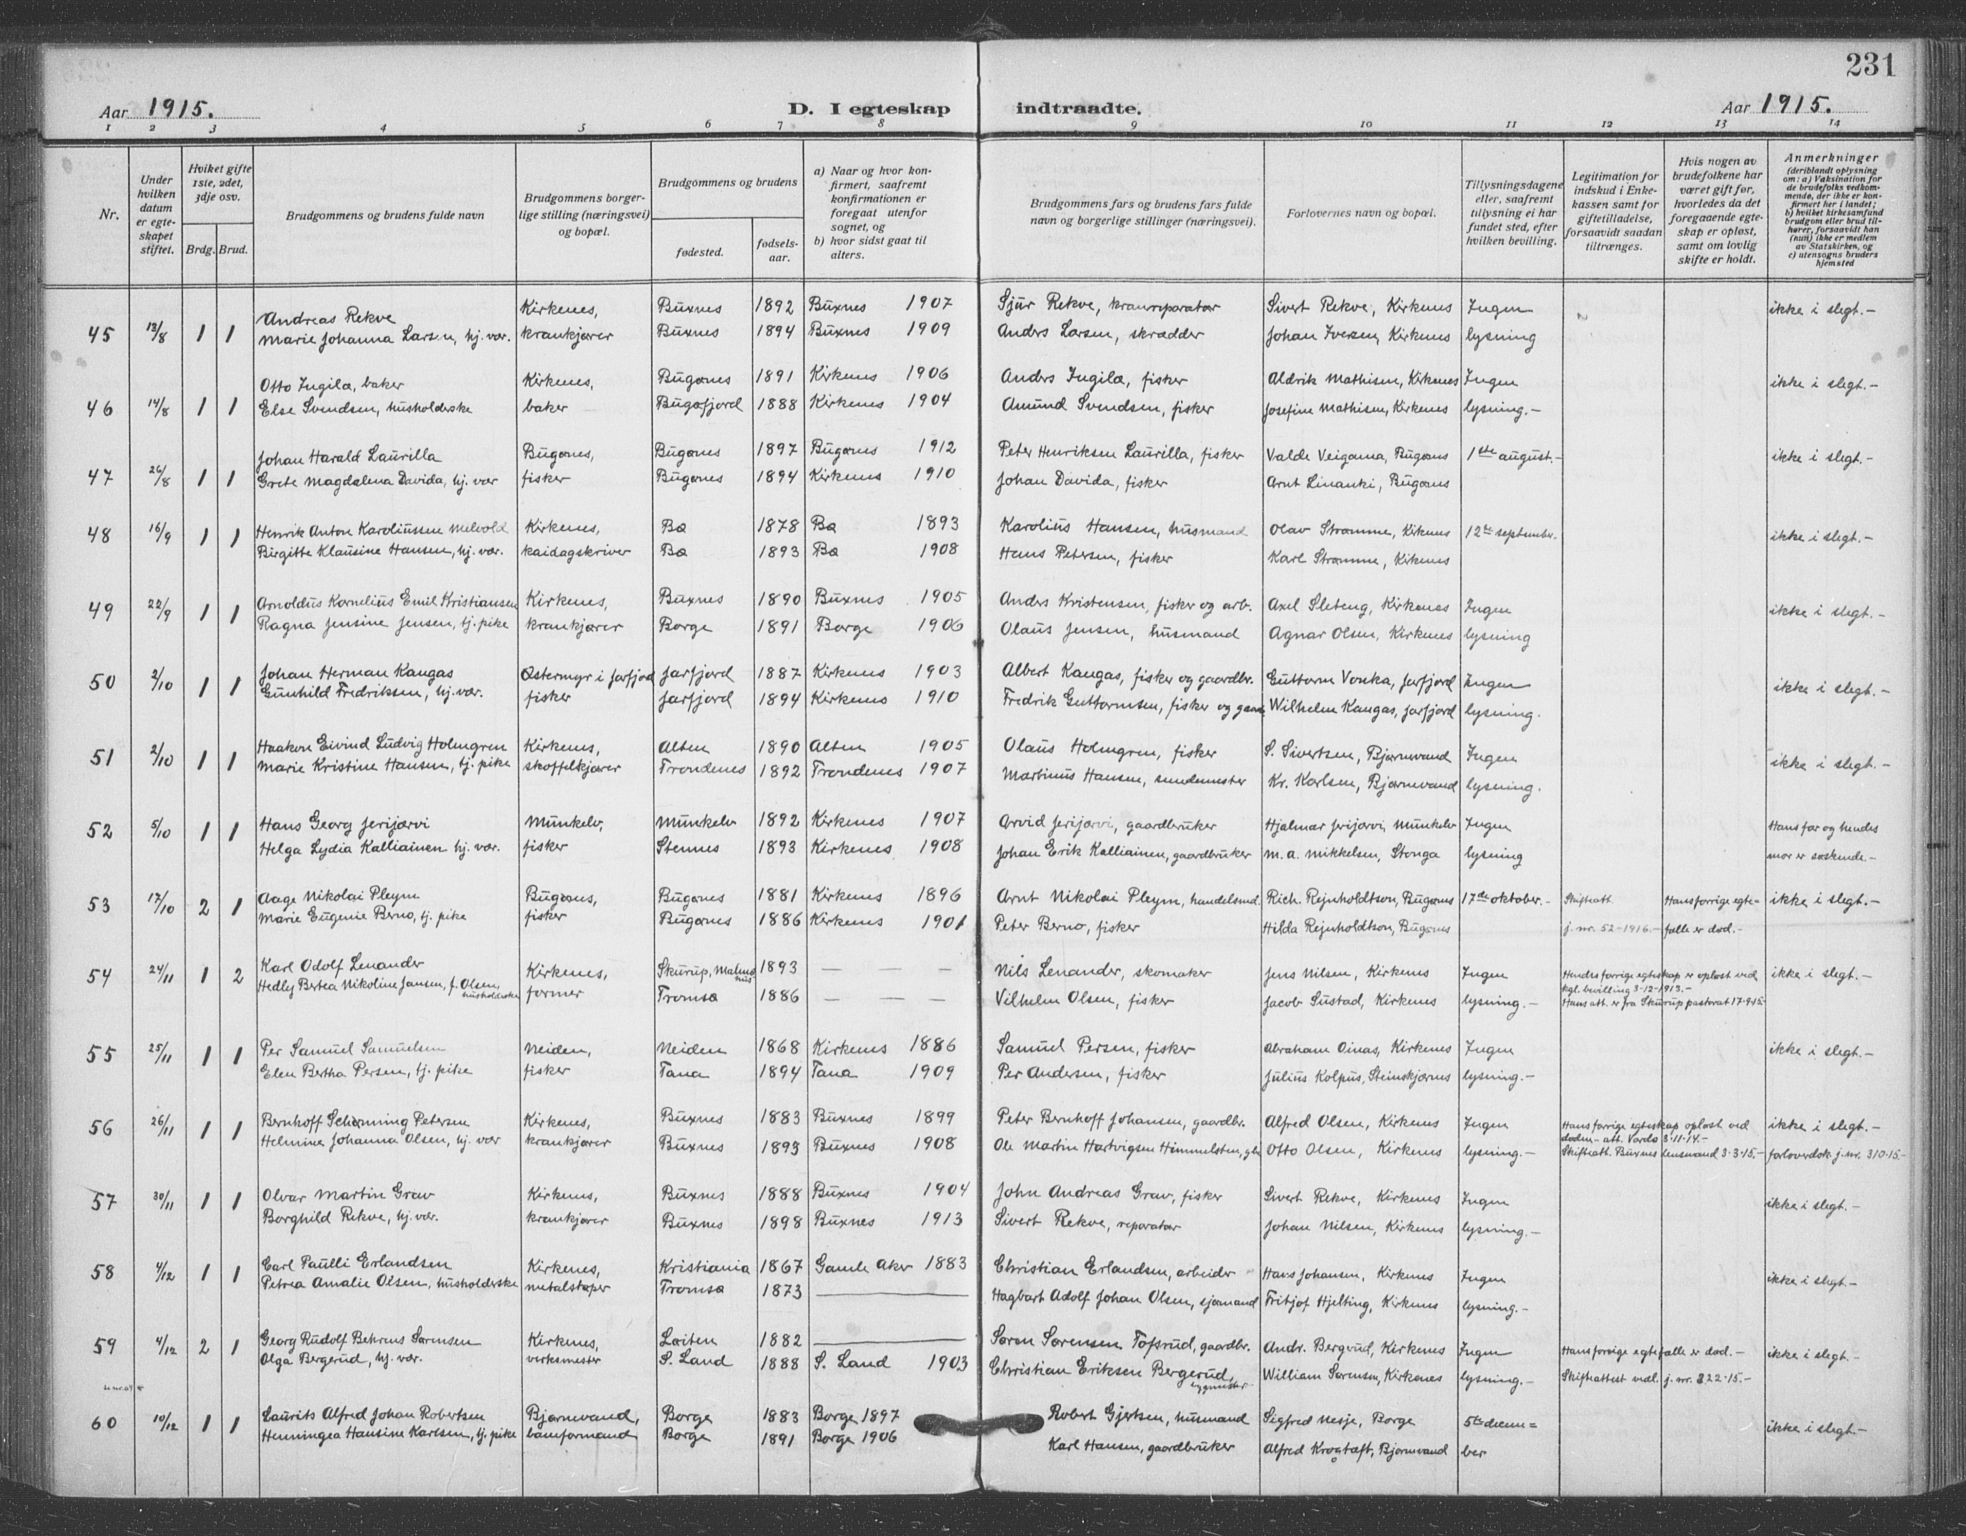 231
Aar 1915. D. I egteskap indtraadte. Aar 1915.
1 2 3 4 5 6 7 8 9 10 11 12 13 14
Nr.
Under hvilken datum er egteskapet stiftet.
Hviket gifte 1ste, 2det, 3dje osv.
Brdg. Brud.
Brudgommens og brudens fulde navn
Brudgommens borgerlige stilling (næringsvei) og bopæl.
Brudgommens og brudens
fødested.
fødselsaar.
a) Naar og hvor konfirmert, saafremt konfirmationen er foregaat utenfor sognet, og
b) hvor sidst gaat til alters.
Brudgommens fars og brudens fars fulde navn og borgerlige stillinger (næringsvei).
Forlovernes navn og bopæl.
Tillysningsdagene eller, saafremt tillysning ei har fundet sted, efter hvilken bevilling.
Legitimation for indskud i Enkekassen samt for giftetilladelse, forsaavidt saadan tiltrænges.
Hvis nogen av brudefolkene har været gift før, hvorledes da det foregaaende egteskap er opløst, samt om lovlig skifte er holdt.
Anmerkninger (deriblandt oplysning om: a) Vaksination for de brudefolks vedkommende, der ikke er konfirmert her i landet; b) hvilket kirkesamfund brudgom eller brud tilhører, forsaavidt han (hun) ikke er medlem av Statskirken, og c) utensogns bruders hjemsted
45 13/8 1 1 Andreas Rekve Kirkenes, Buxnes 1892 Buxnes 1907 Sjur Rekve, kranreparatør Sivert Rekve, Kirkenes Ingen ikke i slegt.-
Marie Johanna Larsen, hj. vær. krankjører Buxnes 1894 Buxnes 1909 Anders Larsen, skrædder Johan Iversen, Kirkenes lysning
46 14/8 1 1 Otto Ingilæ, baker Kirkenes, Bugønes 1891 Kirkenes 1906 Anders Ingilæ, fisker Aldrik Mathisen, Kirkenes Ingen ikke i slegt.-
Else Svendsen, husholderske baker Bugøfjord 1888 Kirkenes 1904 Amund Svendsen, fisker Josefine Mathisen, Kirkenes lysning.-
47 26/8 1 1 Johan Harald Laurilla Bugønes, Bugønes 1897 Bugønes 1912 Peter Henriksen Laurilla, fisker Valde Veiganna, Bugønes 1ste august.- ikke i slegt.-
Grete Magdalena Davida, hj. vær fisker Bugønes 1894 Kirkenes 1910 Johan Davida, fisker Arnt Linanki, Bugønes
48 16/9 1 1 Henrik Anton Karoliussen Melvold Kirkenes, Bø 1878 Bø 1893 Karolius Hansen, husmand Olav Strømme, Kirkenes 12te september. ikke i slegt.-
Birgitte Klausine Hansen, hj. vær. kaidagskriver Bø 1893 Bø 1908 Hans Petersen, fisker Karl Strømme, Kirkenes
49 22/9 1 1 Arnoldus Kornelius Emil Kristiansen Kirkenes, Buxnes 1890 Buxnes 1905 Anders Kristensen, fisker og arb. Axel Sleteng, Kirkenes Ingen ikke i slegt.-
Ragna Jensine Jensen, tj. pike krankjører Borge 1891 Borge 1906 Olaus Jensen, husmand Agnar Olsen, Kirkenes lysning
50 2/10 1 1 Johan Herman Kangas Østermyr i Jarfjord Jarfjord 1887 Kirkenes 1903 Albert Kangas, fisker og gaardbr. Guttorm Vonka, Jarfjord Ingen ikke i slegt.-
Gunhild Fredriksen, hj. vær. fisker Jarfjord 1894 Kirkenes 1910 Fredrik Guttormsen, fisker og gaard Wilhelm Kangas, Jarfjord lysning.
51 2/10 1 1 Haakon Eivind Ludvig Holmgren Kirkenes, Alten 1890 Alten 1905 Olaus Holmgren, fisker S. Sivertsen, Bjørnevand Ingen ikke i slegt.-
Marie Kristine Hansen, tj. pike skoffelkjører Trondenes 1892 Trondenes 1907 Martinus Hansen, Kr. Karlsen, Bjørnevand lysning.
52 5/10 1 1 Hans Georg Jerijærvi Munkelv, Munkelv 1892 Kirkenes 1907 Arvid Jerijærvi, gaardbruker Hjalmar Jerijærvi, Munkelv Ingen Hans far og hendes
Helga Lydia Kalliainen hj. vær. fisker Stennes 1893 Kirkenes 1908 Johan Erik Kalliainen, gaardbruker M. A. Mikkelsen, Stonga lysning mor er søskende.-
53 17/10 2 1 Aage Nikolai Pleym Bugønes, Bugønes 1881 Kirkenes 1896 Arnt Nikolai Pleym, handelsmd. Rich. Rejnholdtson, Bugønes 17de oktober.- Skifteatt. Hans forrige egte- ikke i slegt.-
Marie Eugenie Berno, tj. pike fisker Bugønes 1886 Kirkenes 1901 Peter Berno, fisker Hilda Rejnholdtson, Bugønes j. nr. 52-1916.- fælle er død.-
54 24/11 1 2 Karl Odolf Lenander Kirkenes, Skurup, Malmøhus 1893 — — — Nils Lenander, skomaker Jens Nilsen, Kirkenes Ingen Hendes forrige egteskap er opløst ved ikke i slegt.-
Hedley Bertea Nikoline Jansen, f. Olsen, husholderske former Tromsø 1886 — — — Vilhelm Olsen, fisker Jacob Sustad, Kirkenes lysning.- kgl. bevilling 3-12-1913.-
Hans att. er fra Skurup pastorat 17-9-15-
55 25/11 1 1 Per Samuel Samuelsen Neiden, Neiden 1868 Kirkenes 1886 Samuel Persen, fisker Abraham Oinas, Kirkenes Ingen ikke i slegt.-
Elen Bertha Persen, tj. pike fisker Tana 1894 Tana 1909 Per Andersen, fisker Julius Kolpus, Steinskjærnes lysning.-
56 26/11 1 1 Bernhoff Schønning Petersen Kirkenes, Buxnes 1883 Buxnes 1899 Peter Bernhoff Johansen, gaardbr. Alfred Olsen, Kirkenes Ingen Hans forrige egteskap opløst ved ikke i slegt.-
døden- att. Vardø 3-11-14.-
Helmine Johanna Olsen, hj. vær krankjører Buxnes 1893 Buxnes 1908 Ole Martin Hartvigsen Himmelsten, gbr Otto Olsen, Kirkenes lysning.- Skifteatt. Buxnes lensmand 3-3-15.- forloverdok. j. nr. 310-15.-
57 30/11 1 1 Olvar Martin Grav Kirkenes, Buxnes 1888 Buxnes 1904 John Andreas Grav, fisker Sivert Rekve, Kirkenes Ingen ikke i slegt.-
Borghild Rekve, hj. vær. krankjører Buxnes 1898 Buxnes 1913 Sivert Rekve, reparatør Johan Nilsen, Kirkenes lysning.-
58 4/12 1 1 Carl Paulli Erlandsen Kirkenes, Kristiania 1867 Gamle Aker 1883 Christian Erlandsen, arbeider Hans Johansen, Kirkenes Ingen ikke i slegt.-
Petrea Amalie Olsen, husholderske metalstøper Tromsø 1873 — Hagbart Adolf Johan Olsen, sjømand Fritjof Hjelting, Kirkenes lysning.-
59 4/12 2 1 Georg Rudolf Behrens Sørensen Kirkenes, Løiten 1882 — Søren Sørensen Tofsrud, gaardbr. Andr. Bergrud, Kirkenes Ingen Hans forrige egtefælle er død.- ikke i slegt.-
Olga Bergerud, hj. vær. verksmester S. Land 1888 S. Land 1903 Christian Eriksen Bergerud, bygmester William Sørensen, Kirkenes lysning.- Skifteattest vedl. j. nr. 322-15.-
60 10/12 1 1 Laurits Alfred Johan Robertsen Bjørnevand, Borge 1883 Borge 1897 Robert Gjertsen, husmand Sigfred Nesje, Borge 5te decem= ikke i slegt.-
Henningea Hansine Karlsen, tj. pike basformand Borge 1891 Borge 1906 Karl Hansen, gaardbruker Alfred Krogtøft, Bjørnevand ber